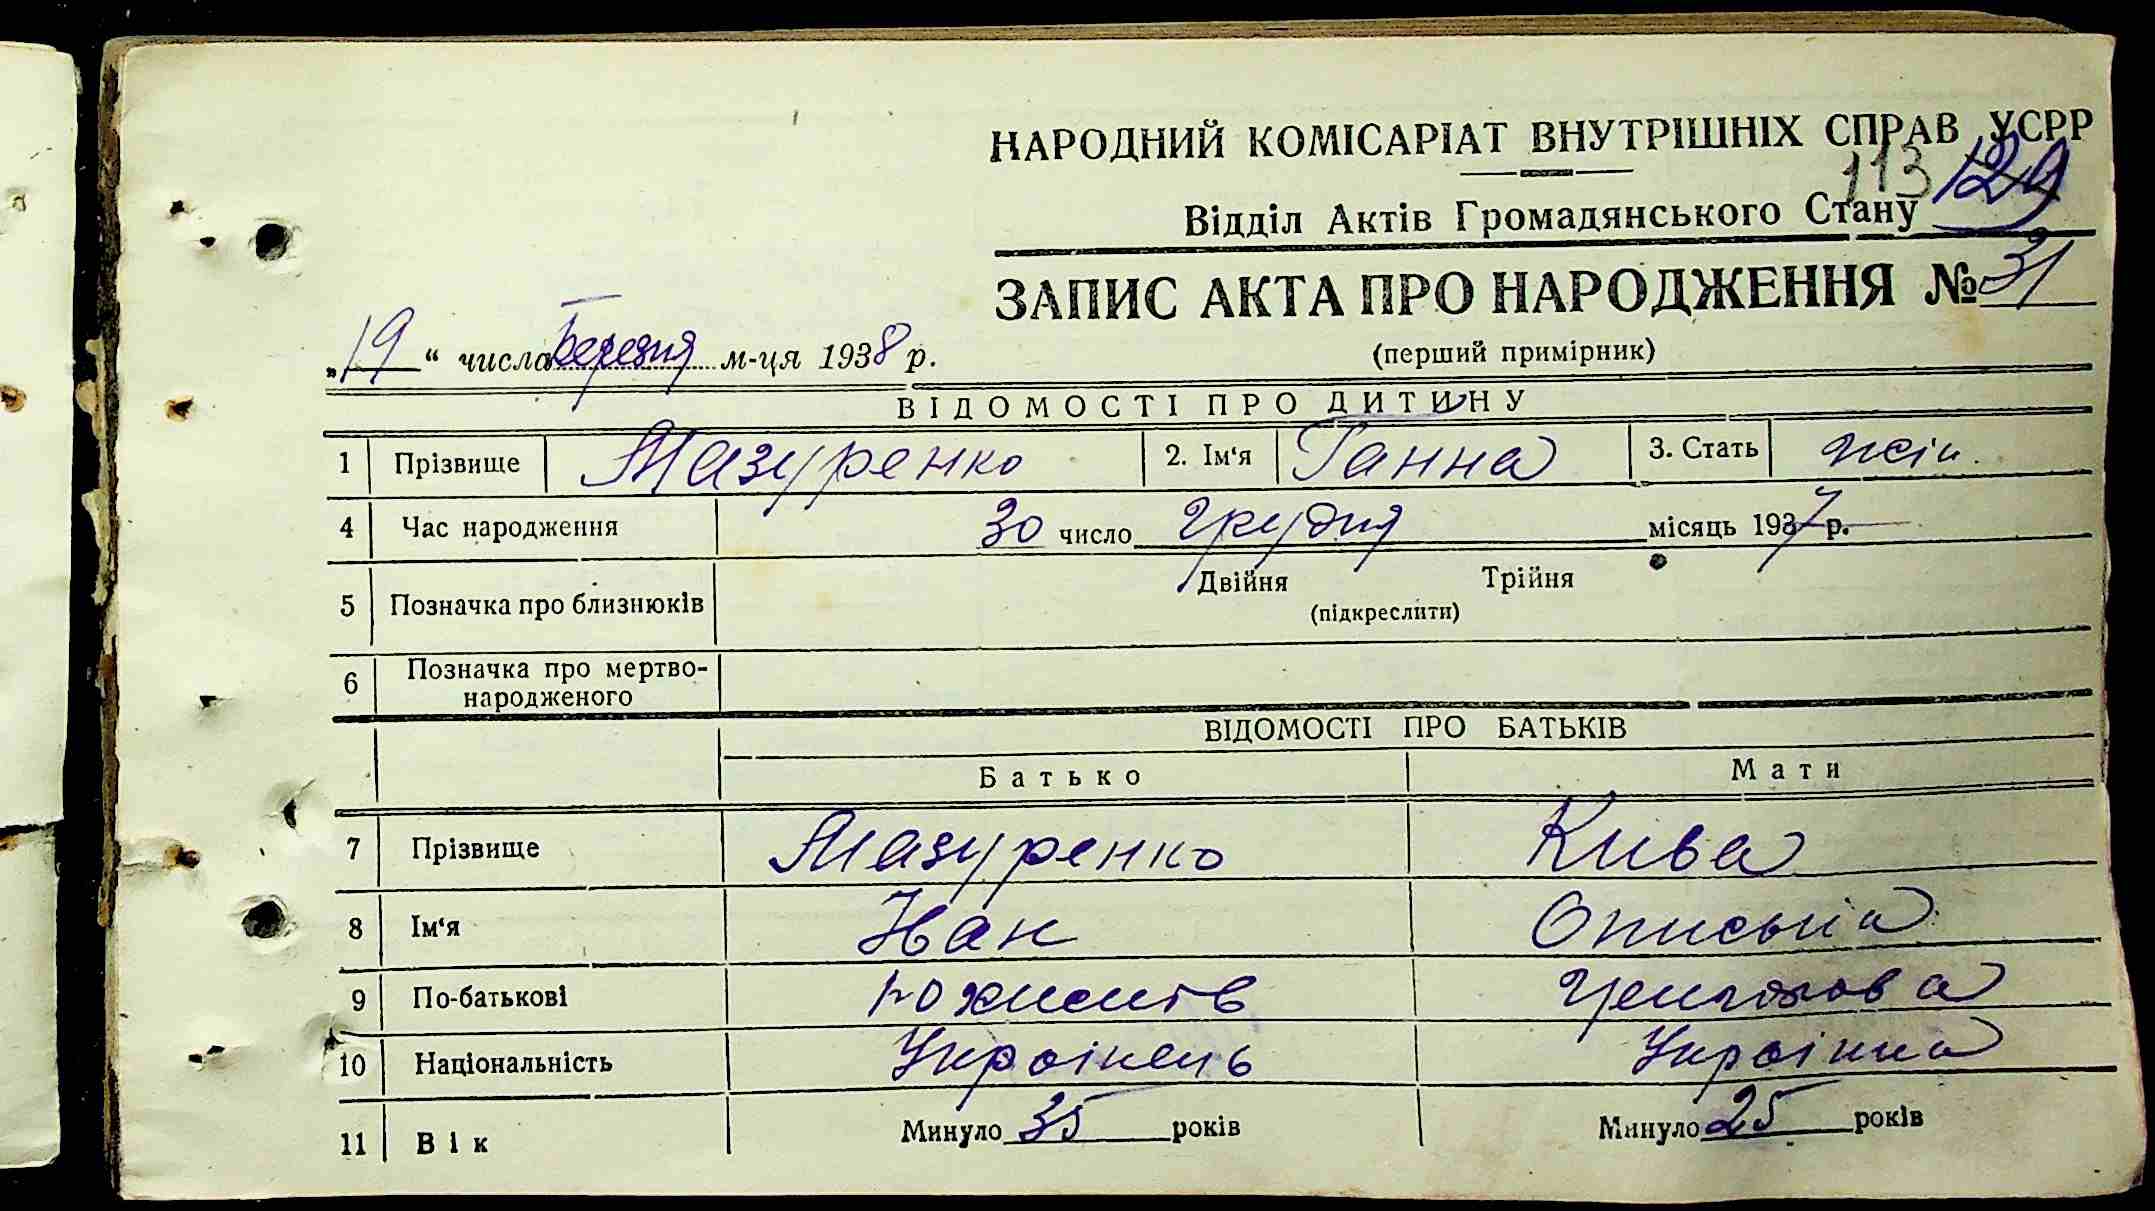 НАРОДНИЙ КОМІСАРІАТ ВНУТРІШНІХ СПРАВ УСРР
113 129
Відділ Актів Громадянського Стану
ЗАПИС АКТА ПРО НАРОДЖЕННЯ № 31
„19“ числа Березня м-ця 1938 р.
(перший примірник)
ВІДОМОСТІ ПРО ДИТИНУ
1 Прізвище Мазуренко 2. Ім‘я Ганна 3. Стать жін.
4 Час народження 30 число грудня місяць 1937 р.
5 Позначка про близнюків Двійня Трійня
(підкреслити)
6 Позначка про мертво-
народженого
ВІДОМОСТІ ПРО БАТЬКІВ
Батько Мати
7 Прізвище Мазуренко Кива
8 Ім‘я Іван
9 По-батькові
10 Національність Українець Українка
11 Вік Минуло 35 років Минуло 25 років